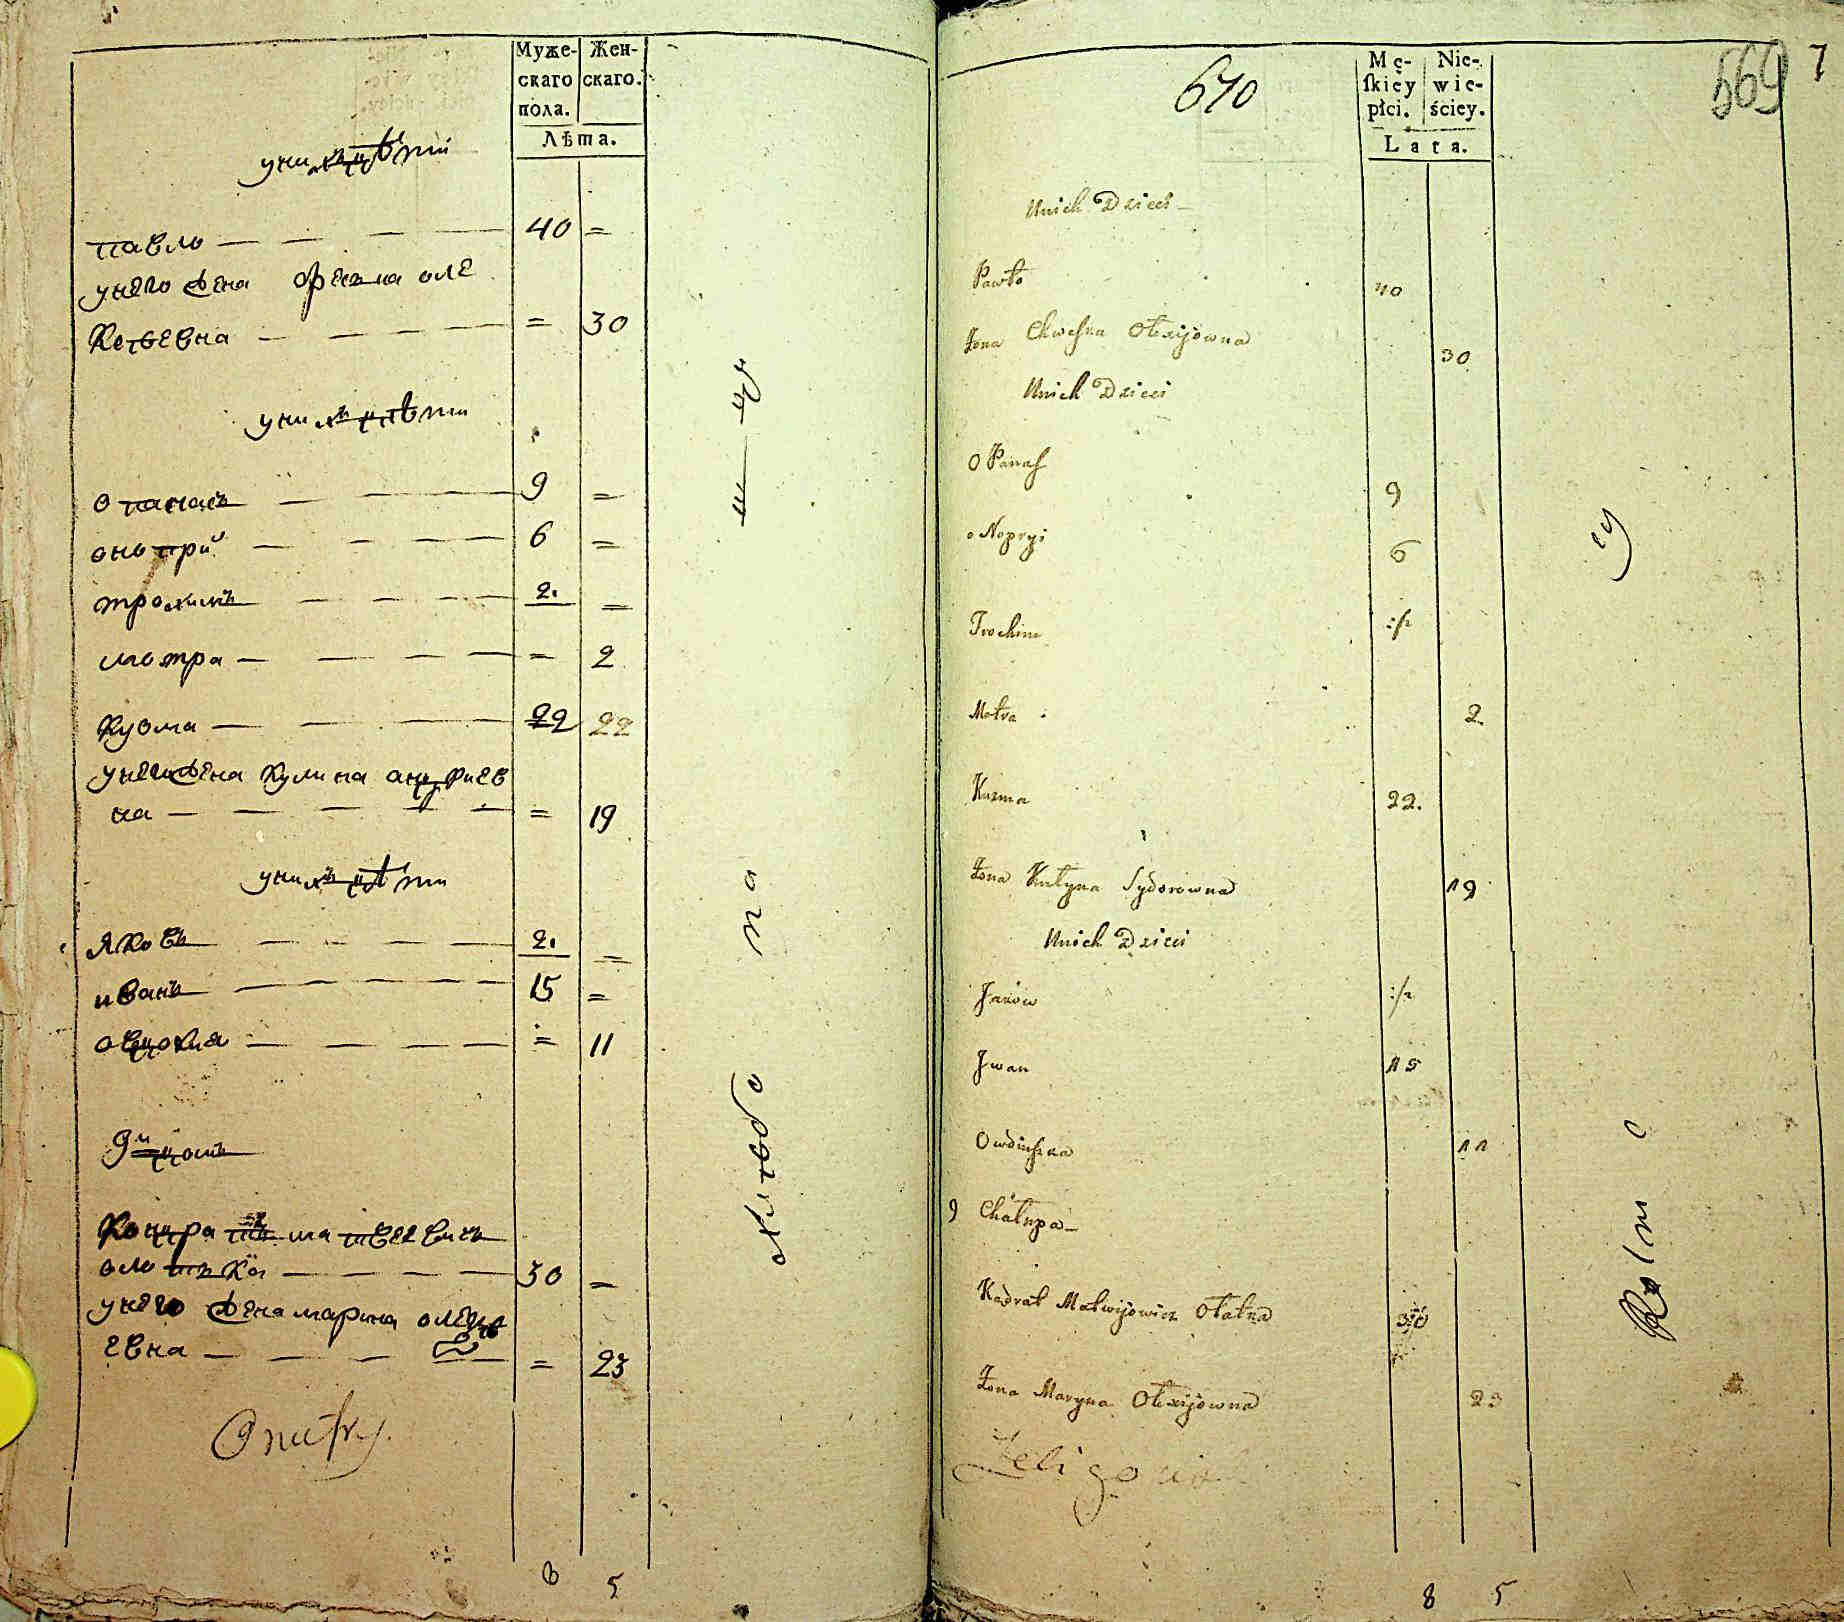 Муже- Жен-
скаго скаго.
пола.
Лѣта.
унихъ дѣти
павло 40 =
унего жена Фенна оле
ксѣевна = 30
унихъ дѣти
опанасъ 9 =
онопрій 6 =
трохимъ 2. =
мотра = 2
Кузма 22 22
унего жена Кулина андриев
на = 19
унихъ дѣти
Яковъ 2. =
иванъ 15 =
овдокия = 11
9й домъ
Кондратъ матвеевичъ
30 =
унего жена марина олексѣ
евна = 23
Onufry.
8 5
670
569 7
Mę- Nie-
ſkiey wie-
płci. ściey.
Lata.
Unich Dzieci
Pawło 40
Żona Chweska Olexijowna 30
Unich Dzieci
O Panas 9
o Nopryi 6
Trochim :/2
Motra 2.
Kuzma 22.
Żona Kulyna Sydorowna 19
Unich Dzieci
Jakow :/2
Jwan 15
Owduszka 11
9 Chałupa
Kadrat Matwijowicz 30
Żona Maryna Olexijowna 23
8 5